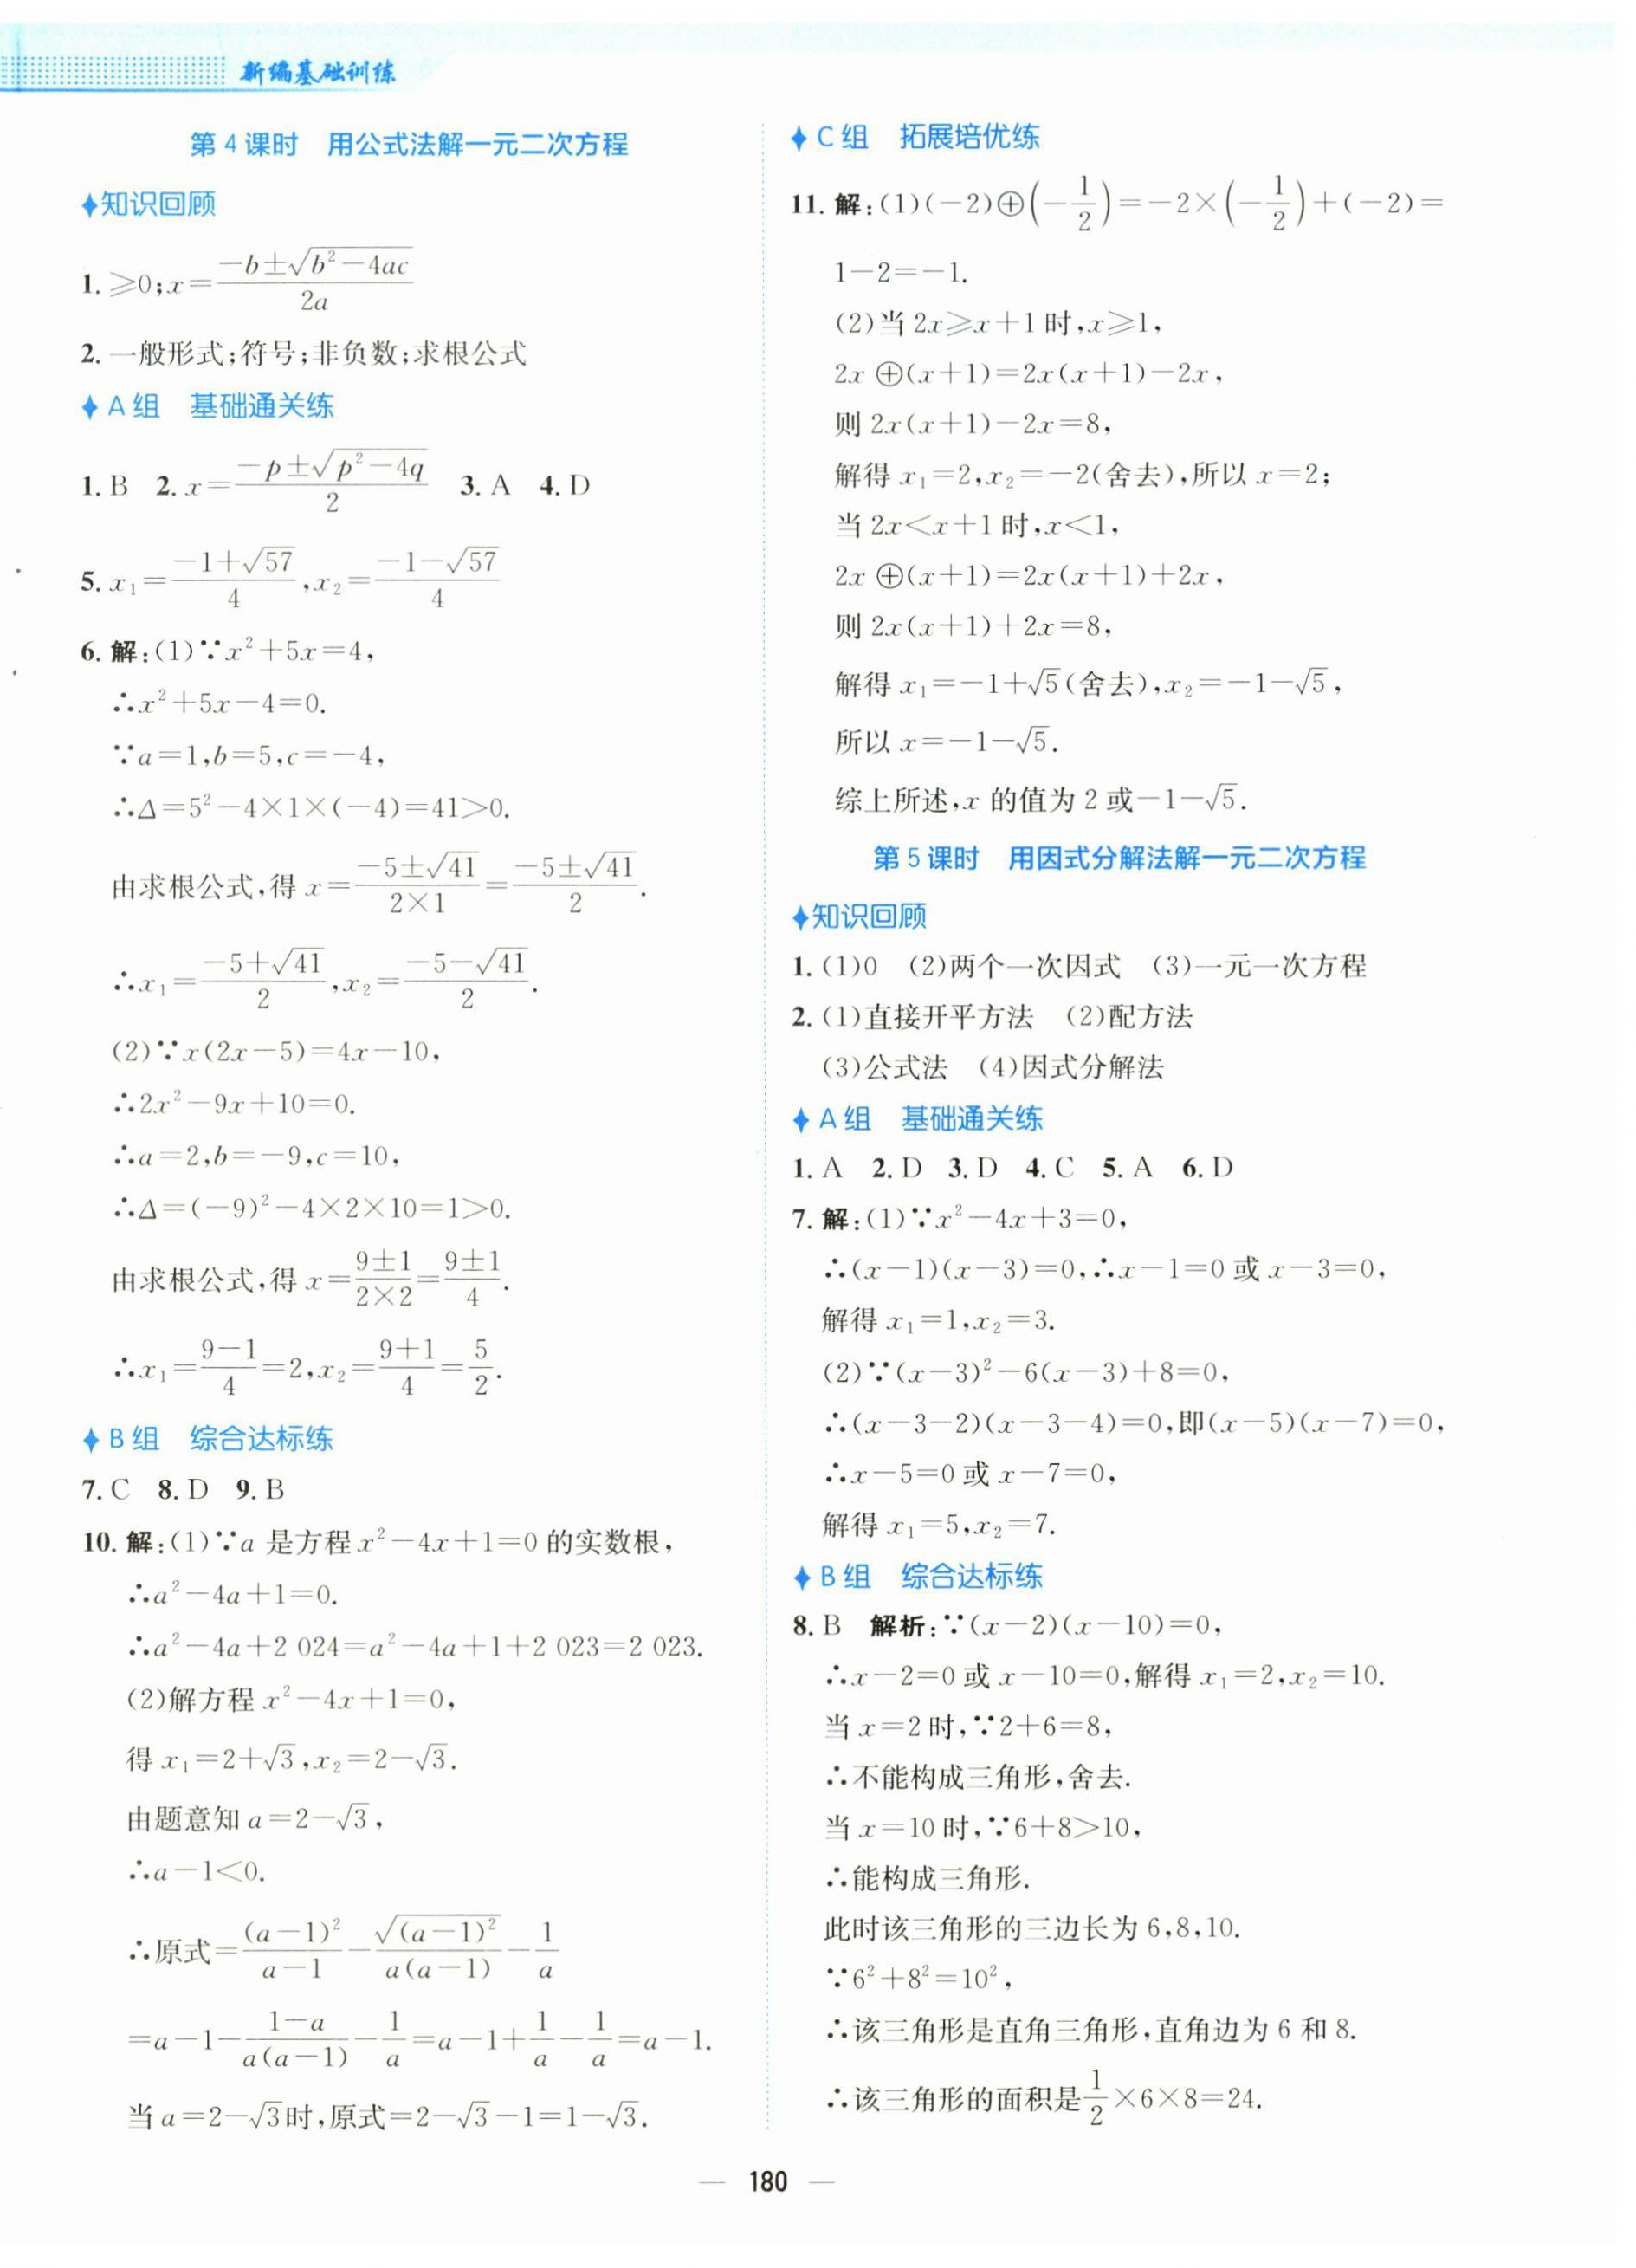 新编基础训练
第4课时 用公式法解一元二次方程
知识回顾
1. ≥0;x=(-b±√(b²-4ac))/(2a)
2. 一般形式;符号;非负数;求根公式
A组 基础通关练
1. B 2. x=(-p±√(p²-4q))/2 3. A 4. D
5. x₁=(-1+√57)/4,x₂=(-1-√57)/4
6. 解:(1)∵x²+5x=4,
∴x²+5x-4=0.
∵a=1,b=5,c=-4,
∴Δ=5²-4×1×(-4)=41>0.
由求根公式,得 x=(-5±√41)/(2×1)=(-5±√41)/2.
∴x₁=(-5+√41)/2,x₂=(-5-√41)/2.
(2)∵x(2x-5)=4x-10,
∴2x²-9x+10=0.
∴a=2,b=-9,c=10,
∴Δ=(-9)²-4×2×10=1>0.
由求根公式,得 x=(9±1)/(2×2)=(9±1)/4.
∴x₁=(9-1)/4=2,x₂=(9+1)/4=5/2.
B组 综合达标练
7. C 8. D 9. B
10. 解:(1)∵a 是方程 x²-4x+1=0 的实数根,
∴a²-4a+1=0.
∴a²-4a+2 024=a²-4a+1+2 023=2 023.
(2)解方程 x²-4x+1=0,
得 x₁=2+√3,x₂=2-√3.
由题意知 a=2-√3,
∴a-1<0.
∴原式=(a-1)²/(a-1)-√((a-1)²)/(a(a-1))-1/a
=a-1-(1-a)/(a(a-1))-1/a=a-1+1/a-1/a=a-1.
当 a=2-√3时,原式=2-√3-1=1-√3.
C组 拓展培优练
11. 解:(1)(-2)⊕(-1/2)=-2×(-1/2)+(-2)=
1-2=-1.
(2)当 2x≥x+1 时,x≥1,
2x⊕(x+1)=2x(x+1)-2x,
则 2x(x+1)-2x=8,
解得 x₁=2,x₂=-2(舍去),所以 x=2;
当 2x<x+1 时,x<1,
2x⊕(x+1)=2x(x+1)+2x,
则 2x(x+1)+2x=8,
解得 x₁=-1+√5(舍去),x₂=-1-√5,
所以 x=-1-√5.
综上所述,x 的值为 2 或-1-√5.
第5课时 用因式分解法解一元二次方程
知识回顾
1. (1)0 (2)两个一次因式 (3)一元一次方程
2. (1)直接开平方法 (2)配方法
(3)公式法 (4)因式分解法
A组 基础通关练
1. A 2. D 3. D 4. C 5. A 6. D
7. 解:(1)∵x²-4x+3=0,
∴(x-1)(x-3)=0,∴x-1=0 或 x-3=0,
解得 x₁=1,x₂=3.
(2)∵(x-3)²-6(x-3)+8=0,
∴(x-3-2)(x-3-4)=0,即(x-5)(x-7)=0,
∴x-5=0 或 x-7=0,
解得 x₁=5,x₂=7.
B组 综合达标练
8. B 解析:∵(x-2)(x-10)=0,
∴x-2=0 或 x-10=0,解得 x₁=2,x₂=10.
当 x=2 时,∵2+6=8,
∴不能构成三角形,舍去.
当 x=10 时,∵6+8>10,
∴能构成三角形.
此时该三角形的三边长为 6,8,10.
∵6²+8²=10²,
∴该三角形是直角三角形,直角边为 6 和 8.
∴该三角形的面积是1/2×6×8=24.
— 180 —